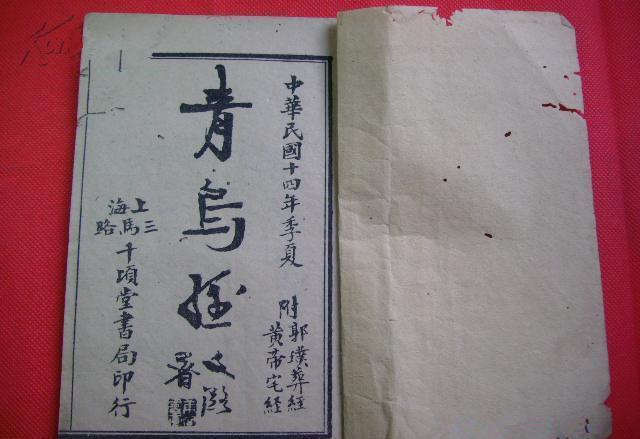 中華民國十四年季夏
附郭璞葬經
黃帝宅經
青烏經
署
上海
三馬路
千頃堂書局印行